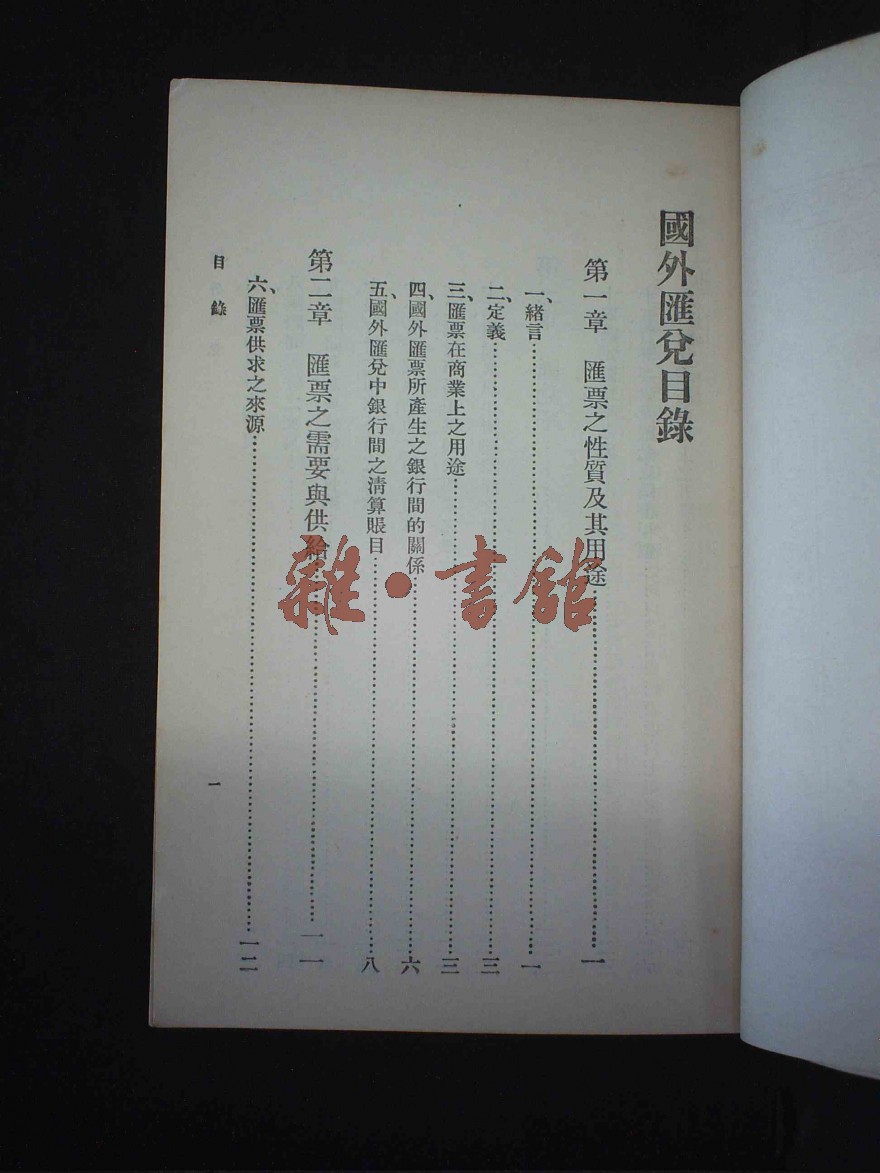 國外匯兌目錄
第一章 匯票之性質及其用途……一
一、緒言……一
二、定義……三
三、匯票在商業上之用途……三
四、國外匯票所產生之銀行間的關係……六
五、國外匯兌中銀行間之清算賬目……八
第二章 匯票之需要與供給……一一
六、匯票供求之來源……一二
目錄
一
雜·書館